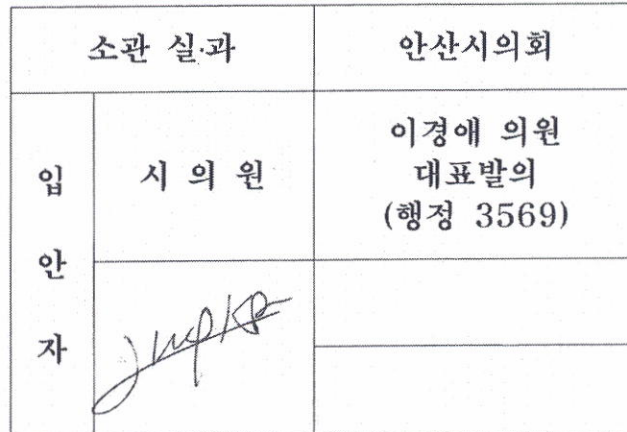 소관 실·과
안산시의회
입
안
자
시 의 원
이경애 의원
대표발의
(행정 3569)